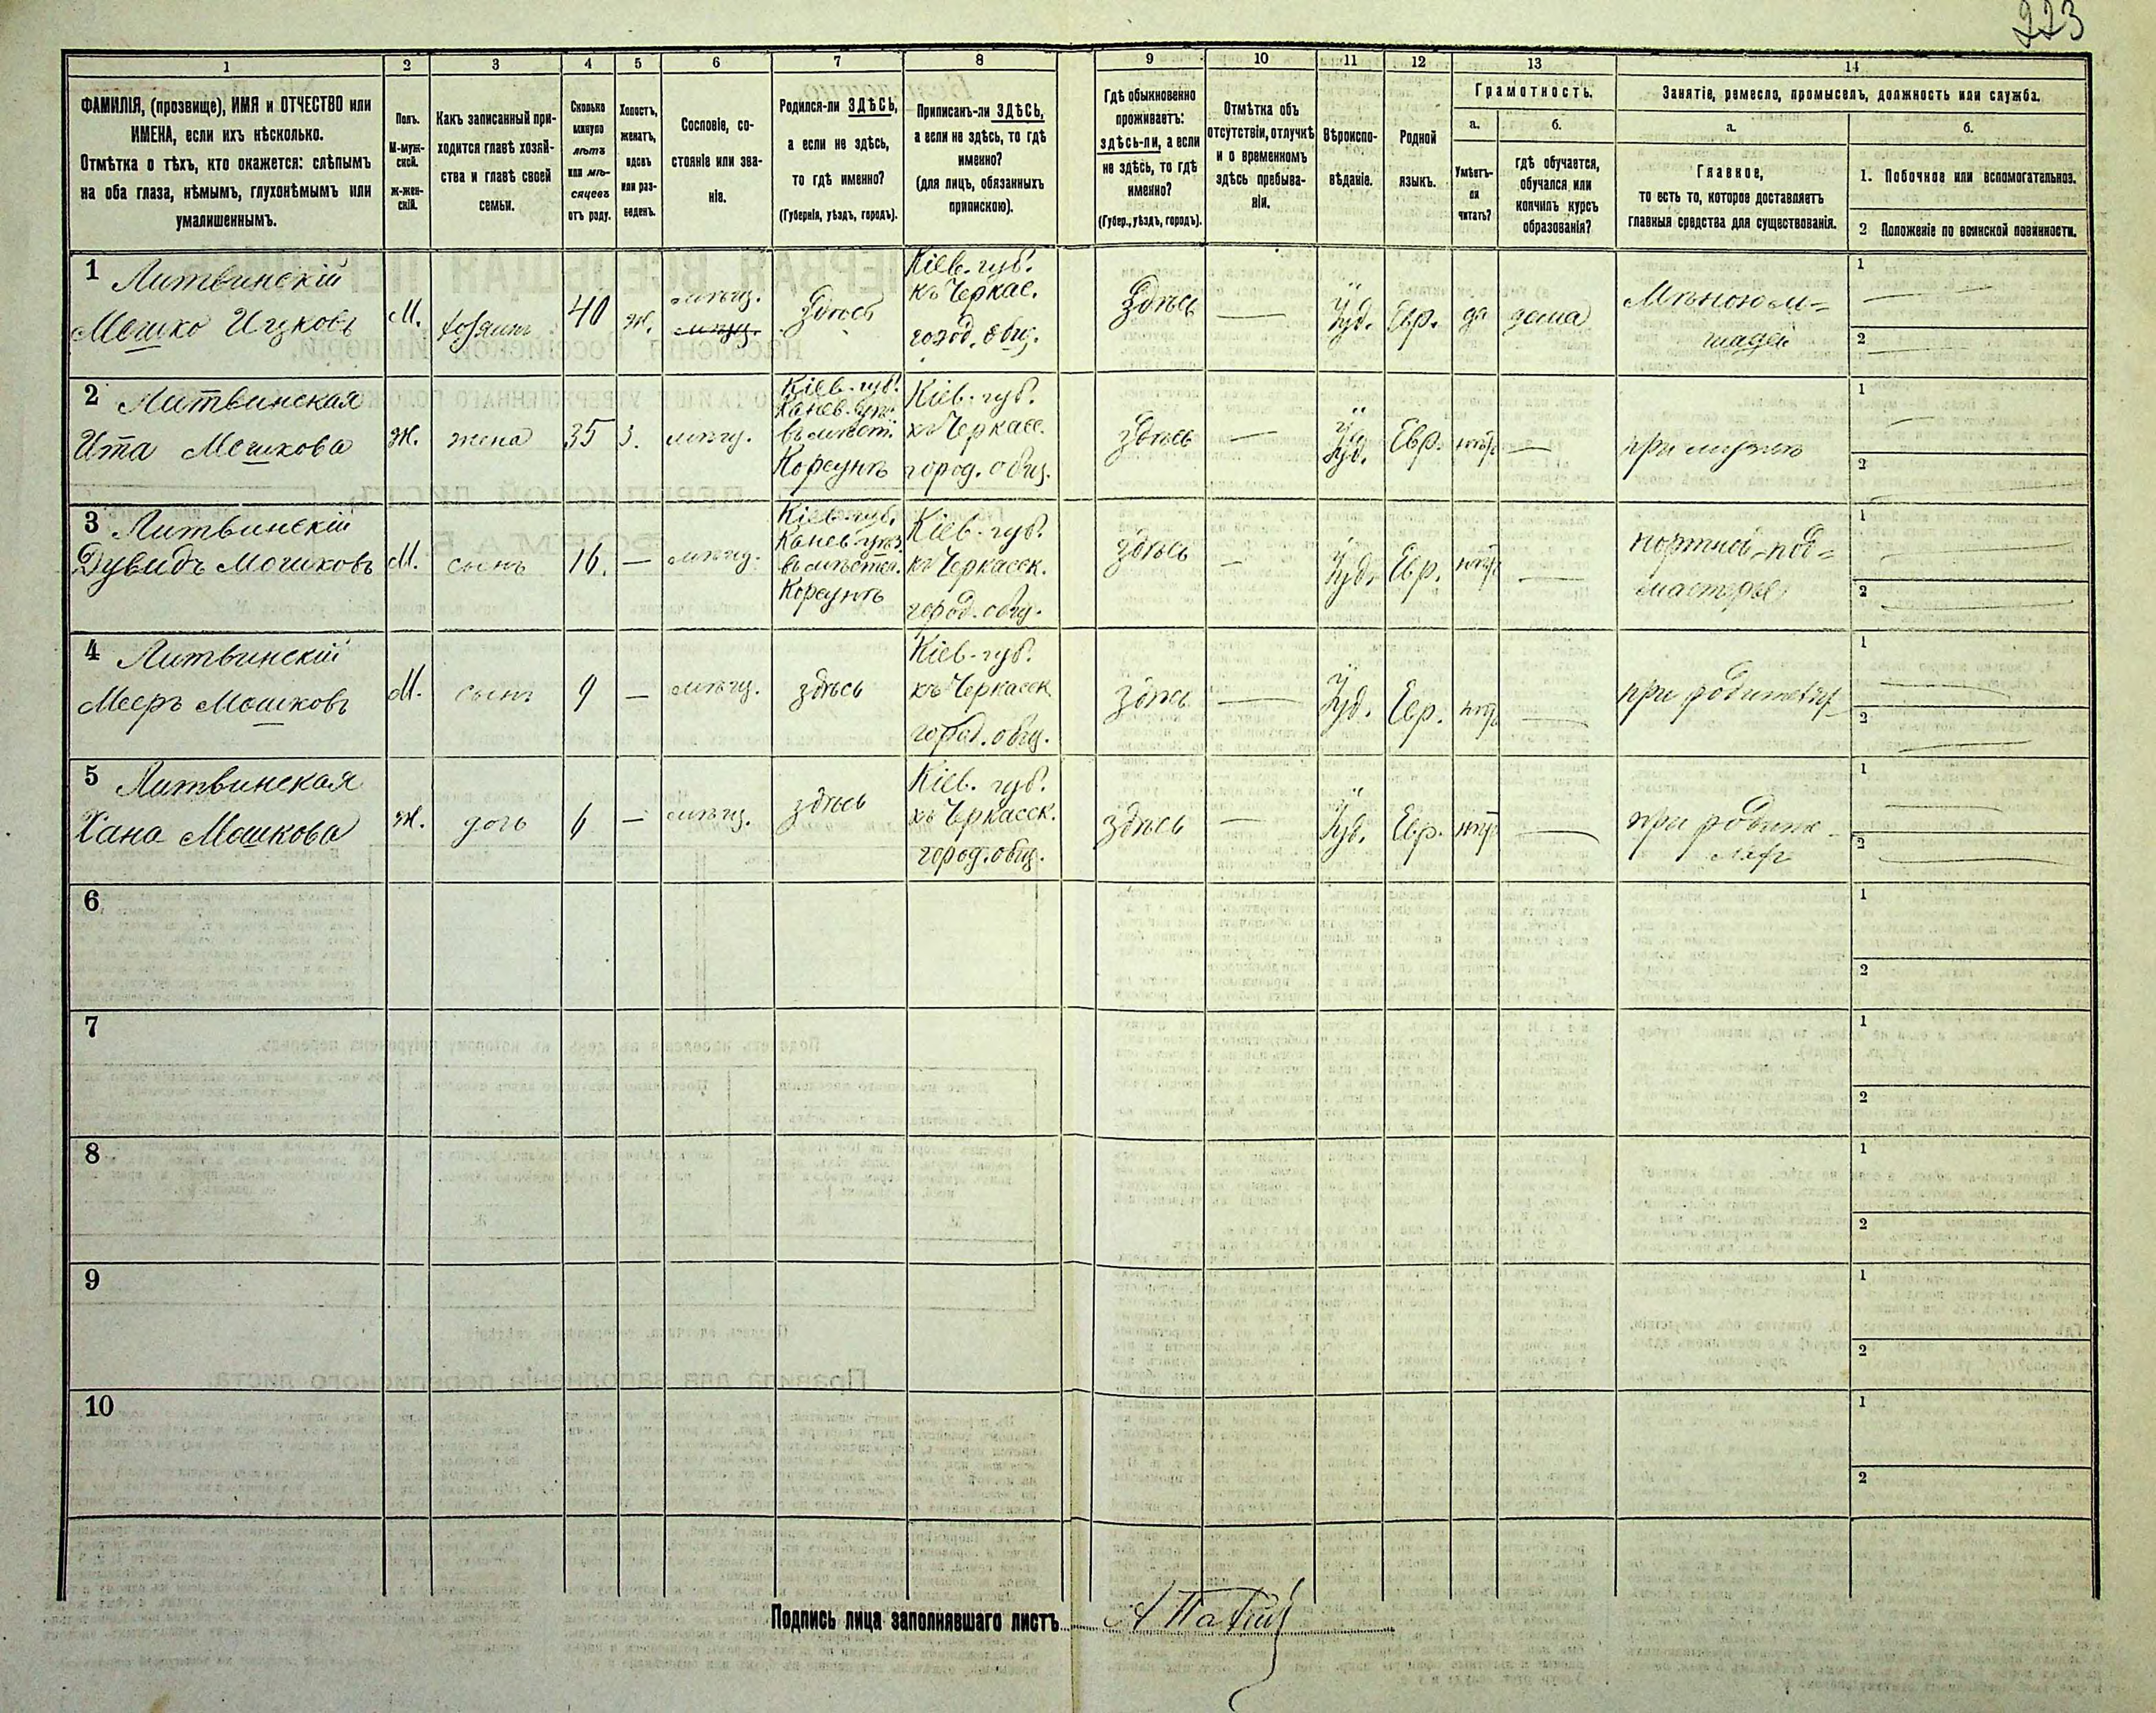 223
1
2
3
4
5
6
7
8
9
10
11
12
13
14
ФАМИЛІЯ, (прозвище), ИМЯ и ОТЧЕСТВО или
ИМЕНА, если ихъ нѣсколько.
Отмѣтка о тѣхъ, кто окажется: слѣпымъ
на оба глаза, нѣмымъ, глухонѣмымъ или
умалишеннымъ.
Полъ.
М-муж-
ской.
Ж-жен-
скій.
Какъ записанный при-
ходится главѣ хозяй-
ства и главѣ своей
семьи.
Сколько
минуло
лѣтъ
или мѣ-
сяцевъ
отъ роду.
Холостъ,
женатъ,
вдовъ
или раз-
веденъ.
Сословіе, со-
стояніе или зва-
ніе.
Родился-ли ЗДѢСЬ,
а если не здѣсь,
то гдѣ именно?
(Губернія, уѣздъ, городъ).
Приписанъ-ли ЗДѢСЬ,
а если не здѣсь, то гдѣ
именно?
(для лицъ, обязанныхъ
припискою).
Гдѣ обыкновенно
проживаетъ:
здѣсь-ли, а если
не здѣсь, то гдѣ
именно?
(Губер., уѣздъ, городъ).
Отмѣтка объ
отсутствіи, отлучкѣ
и о временномъ
здѣсь пребыва-
ніи.
Вѣроиспо-
вѣданіе.
Родной
языкъ.
Грамотность.
а.
Умѣетъ-
ли
читать?
б.
гдѣ обучается,
обучался или
кончилъ курсъ
образованія?
Занятіе, ремесло, промыселъ, должность или служба.
а.
Главное,
то есть то, которое доставляетъ
главныя средства для существованія.
б.
1. Побочное или вспомогательное.
2 Положеніе по воинской повинности.
1 Литвинскій
Мошко Ицковъ
М.
хозяинъ
40
ж.
мѣщ.
мѣщ.
Здѣсь
Кіев. губ.
къ Черкас.
город. общ.
Здѣсь
—
Іуд.
Евр.
да
дома
Мѣною ло-
шадей
1
2
2 Литвинская
Ита Мошкова
Ж.
жена
35
З.
мѣщ.
Кіев. губ.
Канев. уѣз.
въ мѣст.
Корсунѣ
Кіев. губ.
къ Черкасс.
город. общ.
здѣсь
—
Іуд.
Евр.
нѣтъ
—
при мужѣ
1
2
3 Литвинскій
Дувидъ Мошковъ
М.
сынъ
16.
—
мѣщ.
Кіев. губ.
Канев. уѣз.
въ мѣстеч.
Корсунѣ
Кіев. губ.
къ Черкасск.
город. общ.
здѣсь
—
Іуд.
Евр.
нѣтъ
—
портной-под-
мастерье
1
2
4 Литвинскій
Мееръ Мошковъ
М.
сынъ
9
—
мѣщ.
здѣсь
Кіев. губ.
къ Черкасск.
город. общ.
здѣсь
—
Іуд.
Евр.
нѣтъ
—
1
2
5 Литвинская
Хана Мошкова
Ж.
дочь
6
—
мѣщ.
здѣсь
Кіев. губ.
къ Черкасск.
город. общ.
здѣсь
—
Іуд.
Евр.
нѣтъ
—
при родите-
ляхъ
1
2
6
1
2
7
1
2
8
1
2
9
1
2
10
1
2
Подпись лица заполнявшаго листъ